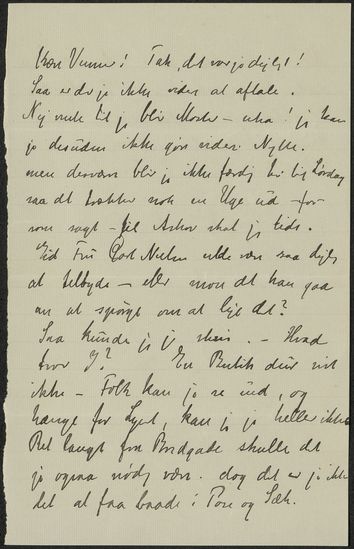 Kære Venner! Tak, det var jo dejligt!
Saa er der jo ikke videre at aftale.
Nej vent til jeg blir Moster – uha! jeg kan
jo desuden ikke gøre videre Nytte.
men desværre blir jeg ikke færdig her til Lørdag
saa det trækker nok en Uge ud – for
som sagt – til Askov skal jeg tids.
Gid Fru Carl Nielsen vilde være saa dejlig
at tilbyde – eller mon det kan gaa
an at spørge om at leje det?
Saa kunde jeg jo – Hvad
tror I? En Butik duer vist
ikke – Folk kan jo se ind, og
hænge for Lyset, kan jeg jo heller ikke
Ret langt fra Bredgade skulle det
jo ogsaa nødig være. dog det er jo ikke
let at faa baade i Pose og Sæk.